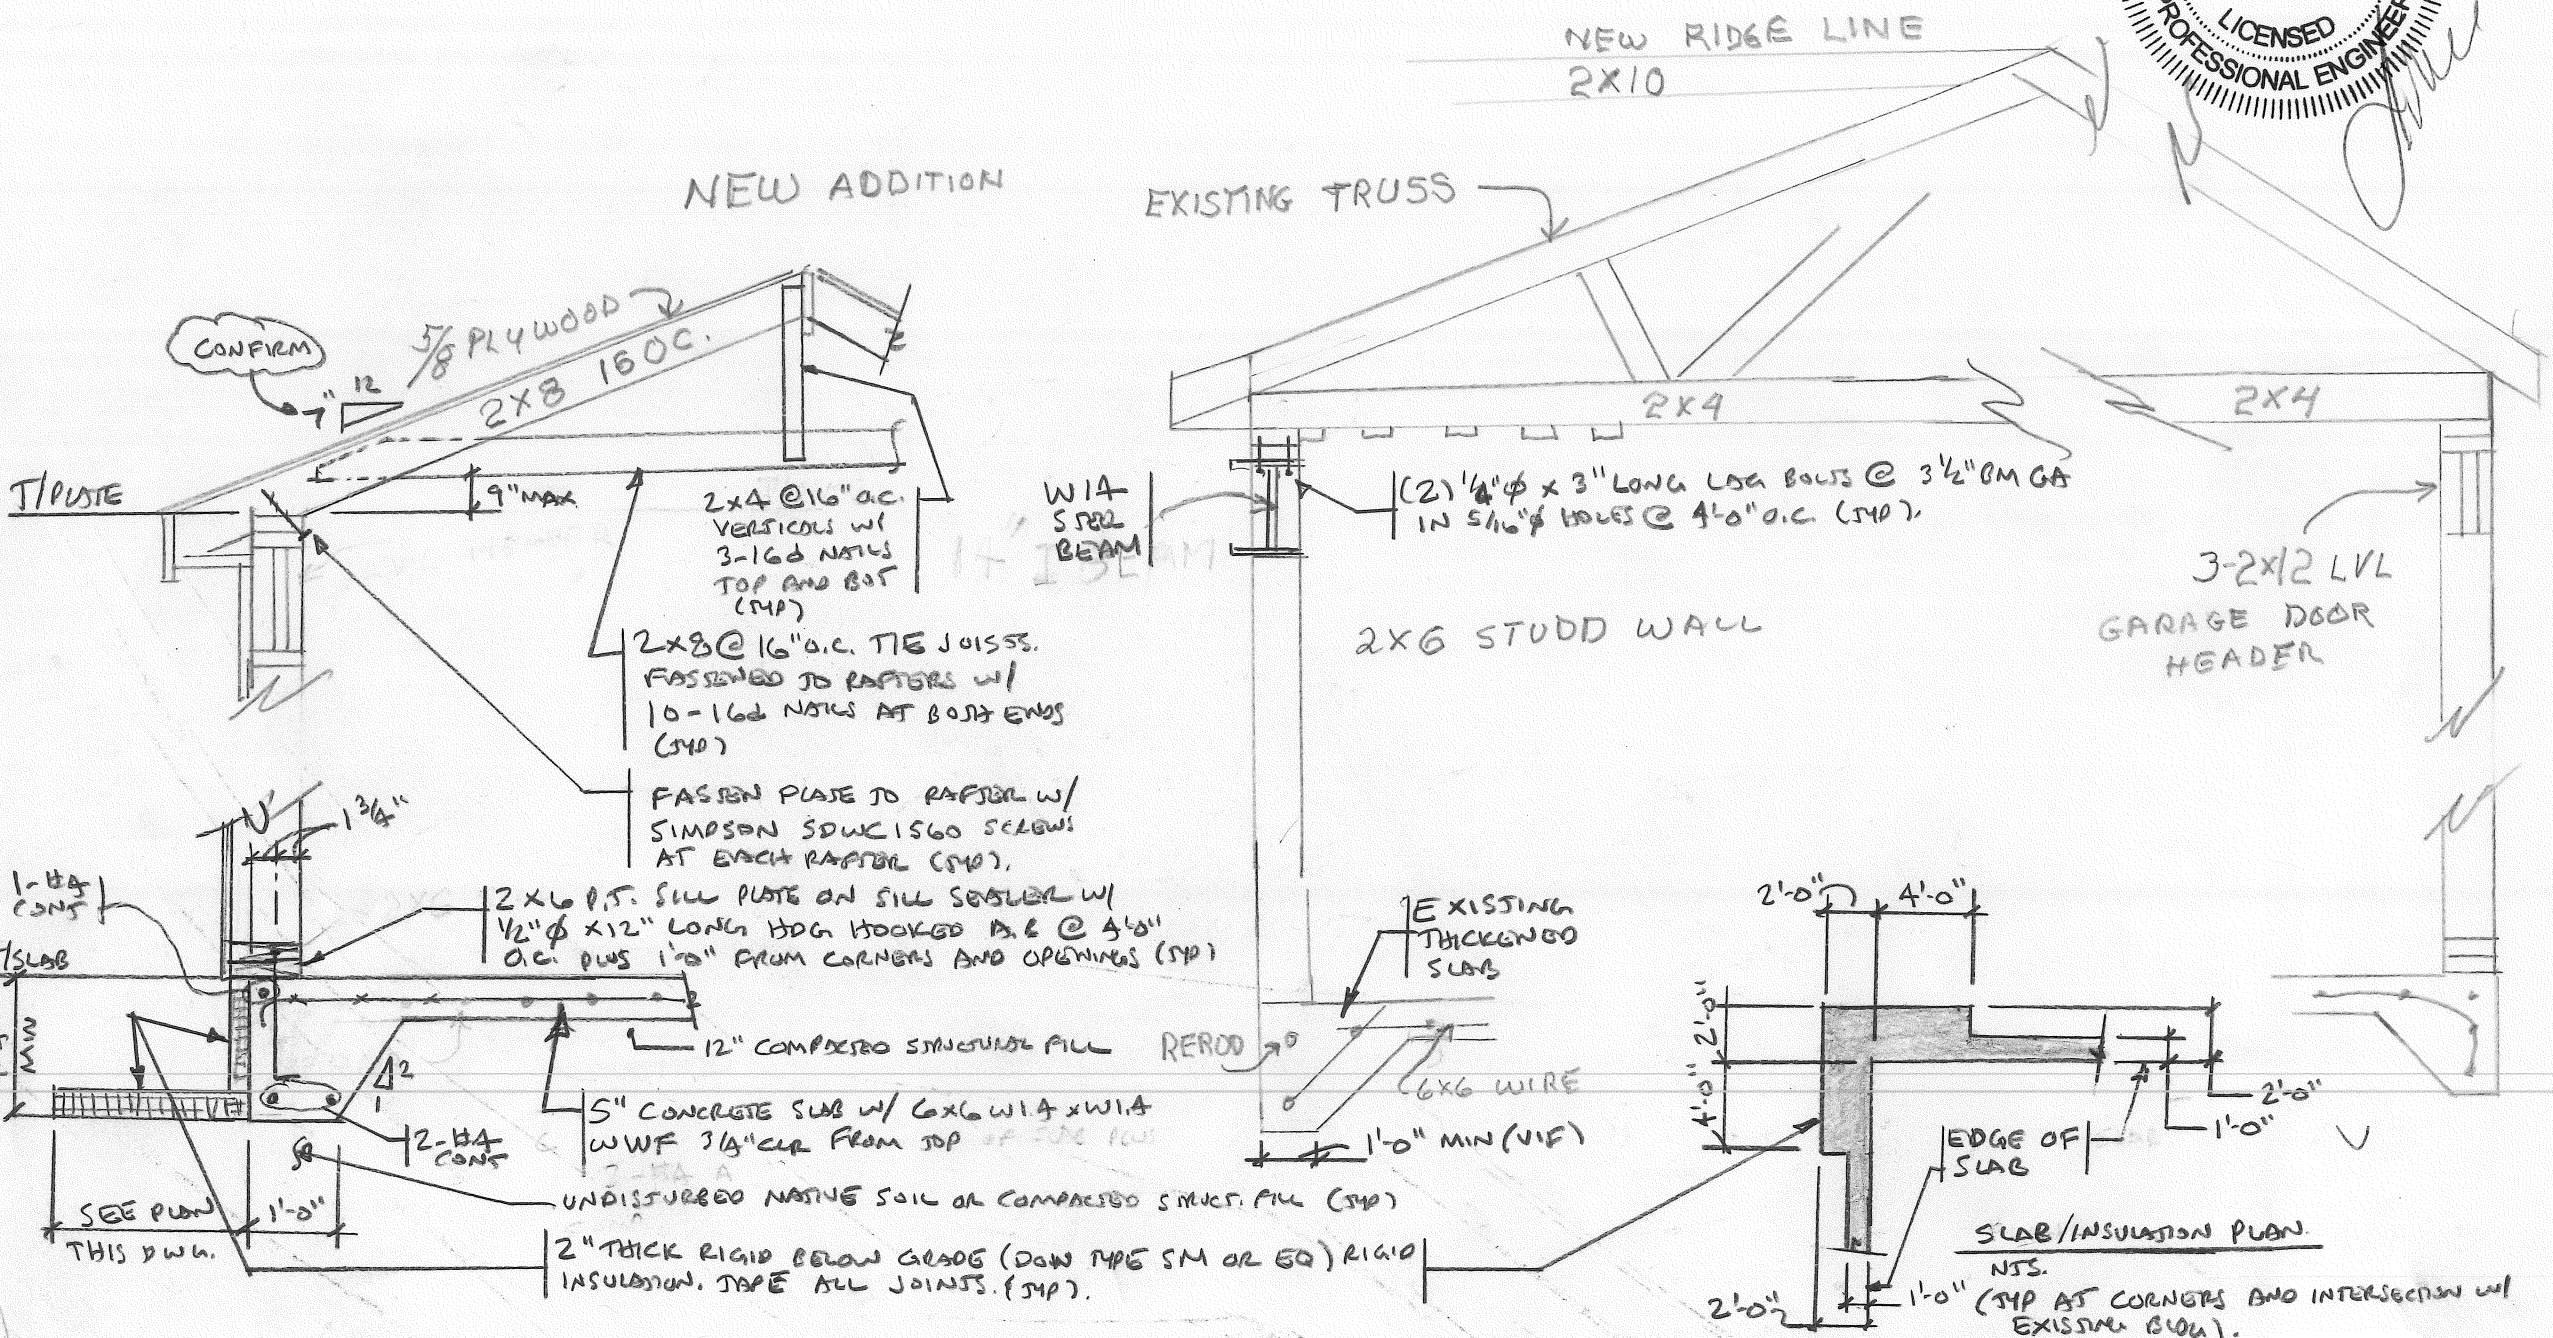 NEW RIDGE LINE
2X10
LICENSED
PROFESSIONAL ENGINEER
NEW ADDITION
EXISTING TRUSS
CONFIRM
7"
12
5/8 PLYWOOD
2X8 16 OC.
T/PLATE
9" MAX
2X4 @ 16" O.C.
VERTICALS W/
3-16d NAILS
TOP AND BOT
(TYP)
2X8 @ 16" O.C. TIE JOISTS.
FASTENED TO RAFTERS W/
10-16d NAILS AT BOTH ENDS
(TYP)
FASTEN PLATE TO RAFTER W/
SIMPSON SDWC1560 SCREWS
AT EACH RAFTER (TYP).
2X4
2X4
W14
STEEL
BEAM
(2) 1/4"Ø X 3" LONG LAG BOLTS @ 3 1/2" BM GA
IN 5/16"Ø HOLES @ 4'-0" O.C. (TYP).
2X6 STUDD WALL
3-2X12 LVL
GARAGE DOOR
HEADER
1 3/4"
1-#4
CONT
T/SLAB
MIN
2X6 P.T. SILL PLATE ON SILL SEALER W/
1/2"Ø X12" LONG HDG HOOKED A.B @ 4'-0"
O.C. PLUS 1'-0" FROM CORNERS AND OPENINGS (TYP)
12" COMPACTED STRUCTURAL FILL
2
1
5" CONCRETE SLAB W/ 6X6 W1.4 X W1.4
WWF 3/4" CLR FROM TOP
2-#4
CONT
UNDISTURBED NATIVE SOIL OR COMPACTED STRUCT. FILL (TYP)
SEE PLAN
THIS DWG.
1'-0"
2" THICK RIGID BELOW GRADE (DOW TYPE SM OR EQ) RIGID
INSULATION. TAPE ALL JOINTS. (TYP).
EXISTING
THICKENED
SLAB
REROD
6X6 WIRE
1'-0" MIN (VIF)
2'-0"
4'-0"
2'-0"
4'-0"
2'-0"
1'-0"
EDGE OF
SLAB
SLAB/INSULATION PLAN.
NTS.
2'-0"
1'-0"
(TYP AT CORNERS AND INTERSECTION W/
EXISTING BLDG).